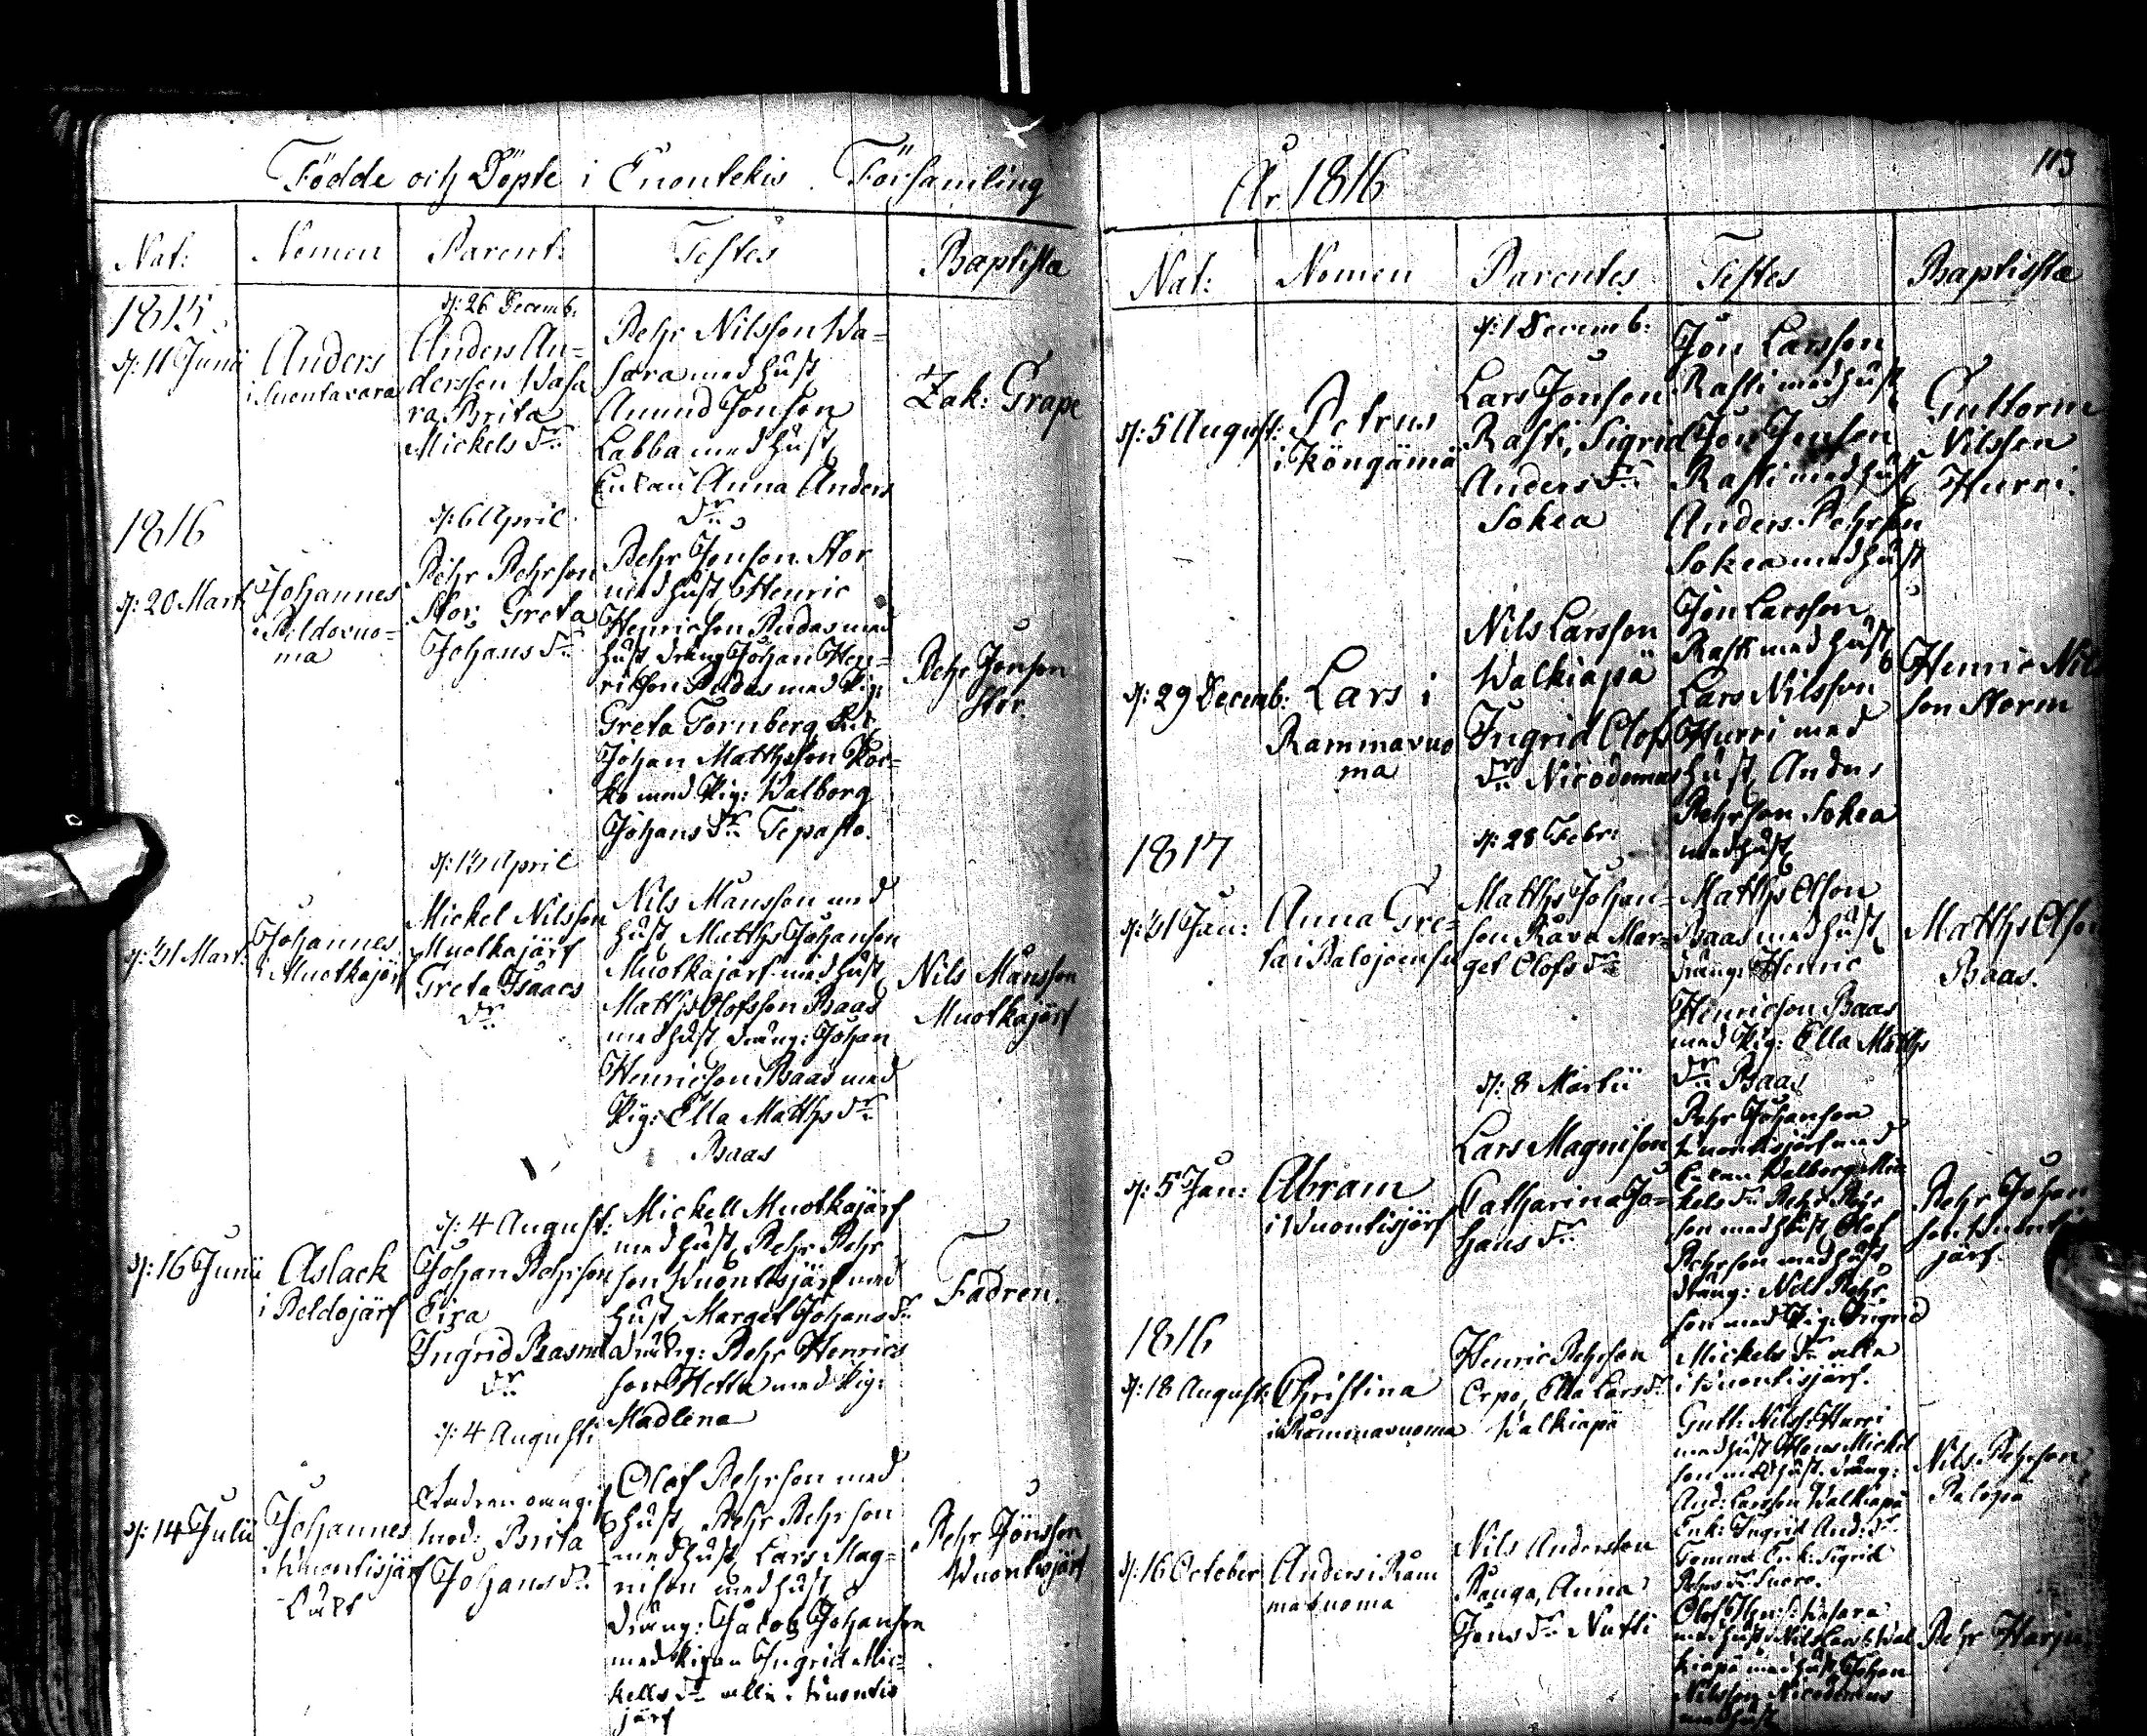 Födde och Döpte i Enontekis Församling
Nat:
Nomen
Parent:
Testes
Baptista
1815
d: 11 Junii
Anders
i Suontavara
d: 26 Decemb:
Anders An=
dersson Wasa
ra, Brita
Mickels dr
Pehr Nilsson Wa=
sara med hust
Amund Jonson
Labba med hust
Enkan Anna Anders
dr
Zak: Grape
1816
d: 20 Mart
Johannes
i Peldovuo=
ma
d: 6 April
Pehr Pehrson
Stor, Greta
Johans dr
Pehr Jonson Stor
med hust Henric
Henricson Pudas med
hust dräng Johan Hen=
ricson Pudas med Pig:
Greta Fornberg
Johan Mathsson Kor=
ko med Pig: Walborg
Johans dr Tepasto.
Pehr Jonson
Stor.
d: 13 April
d: 31 Mart:
Johannes
i Muotkajärf
Mickel Nilsson
Muotkajärf
Greta Isaacs
dr
Nils Månsson med
hust Matths Johanson
Muotkajärf med hust
Matths Olofsson Baas
med hust dräng: Johan
Henricson Baas med
Pig: Ella Matths dr
Baas
Nils Månsson
Muotkajärf
d: 16 Junii
Aslack
i Peldojärf
d: 4 August:
Johan Pehrson
Eira
Ingrid Rasmd
dr
Mickell Muotkajärf
med hust Pehr Pehr
son Wuontisjärf med
hust Marget Johans dr
dräng: Pehr Henrics
son Hetta med Pig:
Madlena
Fadren.
d: 14 Julii
Johannes
i Wuontisjärf
d: 4 Augusti
Fadren
mod: Brita
Johans dr
Olof Pehrson med
hust Pehr Pehrson
med hust, Lars Mag=
nison med hust
dräng: Jacob Johanson
med Pigan Ingrid Mic=
kells dr alla i Wuontis
järf
Pehr Jönsson
Wuontisjärf
År 1816
113
Nat:
Nomen
Parentes
Testes
Baptista
d: 5 August:
Petrus
i Köngämä
d: 1 Decemb:
Lars Jonson
Rasti, Sigrid
Anders dr
Sokea
Jon Larsson
Rasti med hust
Jon Jonson
Rasti med hust
Anders Pehrson
Sokea med hust
Guttorm
Nilsson
Hurri.
d: 29 Decemb:
Lars i
Rammavuo
ma
Nils Larsson
Walkiapä
Ingrid Olofs
dr Nicodemus
Jon Larsson
Rasti med hust
Lars Nilsson
Hurri med
hust, Anders
Pehrson Sokea
med hust
Henric Nils
son Storm
1817
d: 31 Jan:
Anna Gre=
ta i Palojoensu
d: 28 Febr:
Matths Johan=
son Rava Mar=
get Olofs dr
Matths Olson
Baas med hust
dräng: Henric
Henricson Baas
med Pig: Ella Matths
dr Baas
Matths Olson
Baas.
d: 5 Jan:
Abram
i Wuontisjärf
d: 8 Martii
Lars Magnison
Catharina Jo=
hans dr
Pehr Johanson
Wuontisjärf med
Enkan Walborg Mic
kels dr Pehr Pehr
son med hust, Olof
Pehrson med hust
dräng: Nils Pehr
son med Pig: Ingrid
Mickels dr alla
i Wuontisjärf.
Pehr Johan
son Wuontis
järf.
1816
d: 18 August:
Christina
i Rammavuoma
Henric Pehrson
Orpo, Ella Lars dr
Walkiapä
Gutt: Nilss: Hurri
med hust Hans Mickel
son med hust. dräng:
And: Larsson Walkiapä
Enk: Ingrid And: dr
Enk: Sigrid
Nils Pehrson
Palopä
d: 16 October
Anders i Ram
mavuoma
Nils Andersson
Panga, Anna
Jons dr Nutti
med hust, Nils Lars: Wal
kiapä med hust, Johan
Nilsson Nicodemus
med hust
Pehr Harju